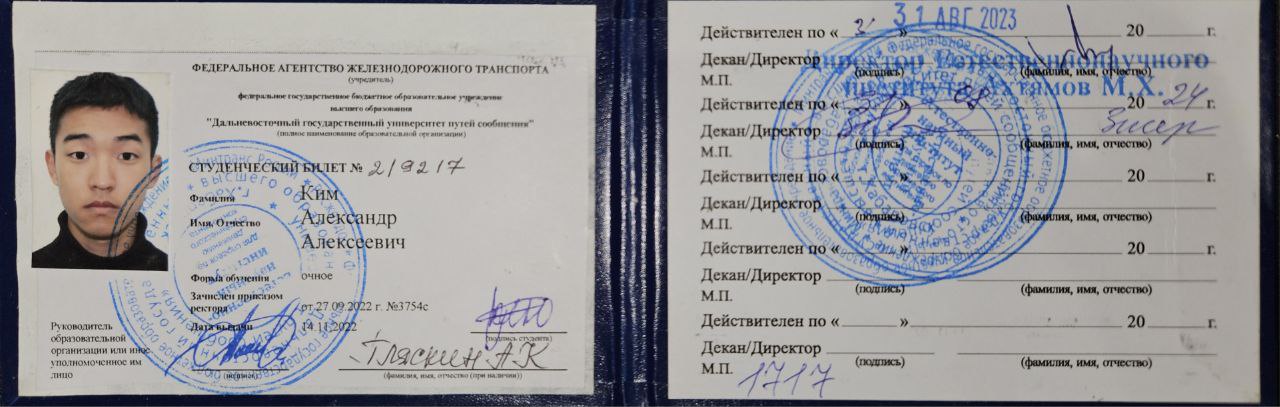 ФЕДЕРАЛЬНОЕ АГЕНТСТВО ЖЕЛЕЗНОДОРОЖНОГО ТРАНСПОРТА
(учредитель)
федеральное государственное бюджетное образовательное учреждение
высшего образования
"Дальневосточный государственный университет путей сообщения"
(полное наименование образовательной организации)
СТУДЕНЧЕСКИЙ БИЛЕТ № 2/9217
Фамилия Ким
Имя, Отчество Александр
Алексеевич
Форма обучения очное
Зачислен приказом
ректора от 27.09.2022 г. №3754с
Дата выдачи 14.11.2022
(подпись студента)
Руководитель
образовательной
организации или иное
уполномоченное им
лицо
(подпись)
Гляскин А К
(фамилия, имя, отчество (при наличии))
31 АВГ 2023
Действителен по « » 20 г.
Декан/Директор Директор Естественнонаучного
(подпись) (фамилия, имя, отчество)
М.П. института Ахтямов М.Х.
Действителен по « » 08 20 24 г.
Декан/Директор
(подпись) (фамилия, имя, отчество)
М.П.
Действителен по « » 20 г.
Декан/Директор
(подпись) (фамилия, имя, отчество)
М.П.
Действителен по « » 20 г.
Декан/Директор
(подпись) (фамилия, имя, отчество)
М.П.
Действителен по « » 20 г.
Декан/Директор
(подпись) (фамилия, имя, отчество)
М.П. 1717